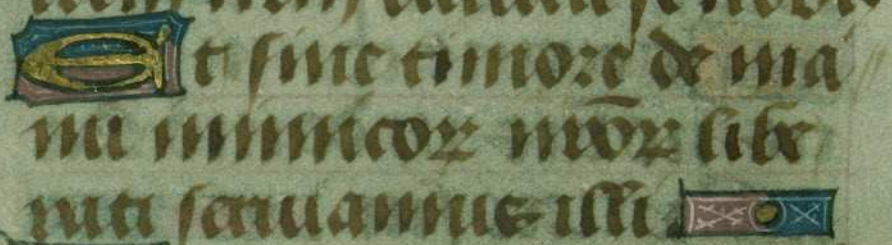 Et sine timore de ma
nu inimicoꝝ nr̄oꝝ libe
rati seruiamus illi